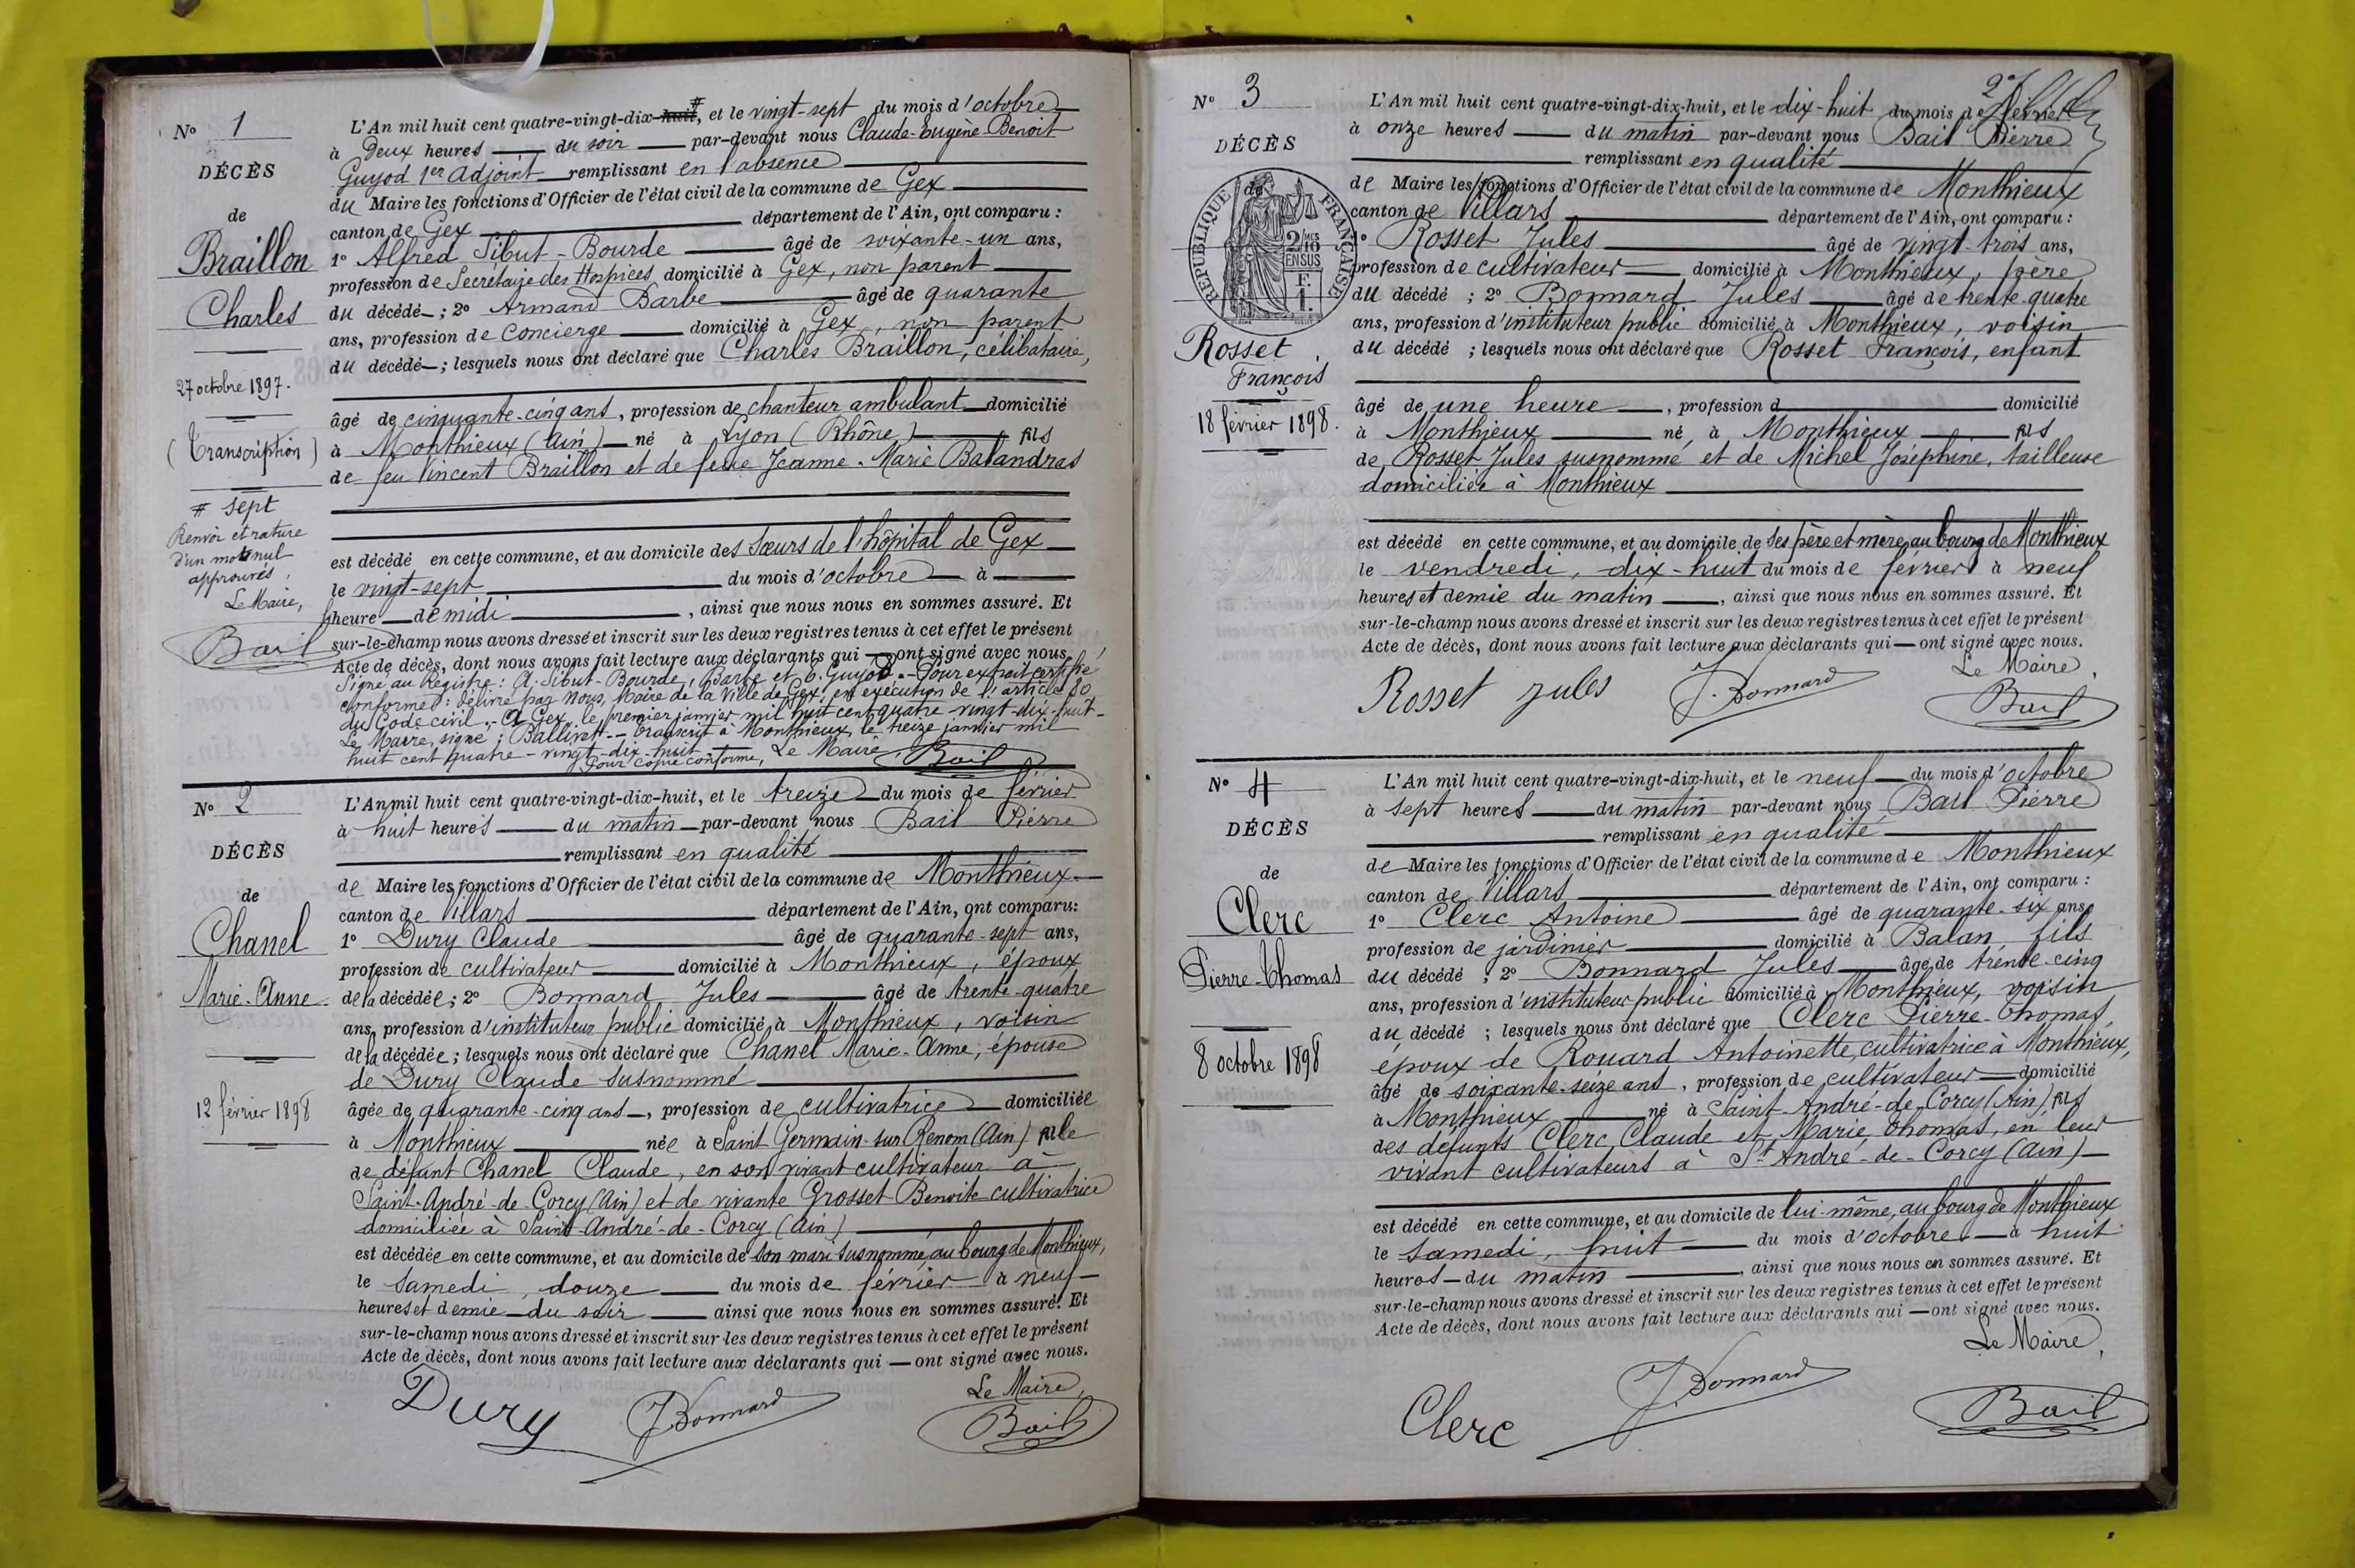 N° 1
DÉCÈS
de
Braillon
Charles
27 octobre 1897.
(Transcription)
# sept
Renvoi et rature
d'un mot nul
approuvés,
Le Maire,
Bail
L'An mil huit cent quatre-vingt-dix-huit #, et le vingt-sept du mois d'octobre
à Deux heures du soir par-devant nous Claude-Eugène-Benoit
Guyod 1er adjoint remplissant en l'absence
du Maire les fonctions d'Officier de l'état civil de la commune de Gex
canton de Gex département de l'Ain, ont comparu :
1° Alfred Sibut-Bourde âgé de soixante-un ans,
profession de Secrétaire des Hospices domicilié à Gex, non parent
du décédé ; 2° Armand Barbe âgé de quarante
ans, profession de Concierge domicilié à Gex, non parent
du décédé ; lesquels nous ont déclaré que Charles Braillon, célibataire,
âgé de cinquante-cinq ans, profession de chanteur ambulant domicilié
à Monthieux (Ain) né à Lyon (Rhône) fils
de feu Vincent Braillon et de feue Jeanne-Marie Balandras
est décédé en cette commune, et au domicile des Sœurs de l'hôpital de Gex
le vingt-sept du mois d'octobre à
heure de midi, ainsi que nous nous en sommes assuré. Et
sur-le-champ nous avons dressé et inscrit sur les deux registres tenus à cet effet le présent
Acte de décès, dont nous avons fait lecture aux déclarants qui ont signé avec nous.
Signé au Registre : A. Sibut-Bourde, Barbe et E. Guyod. - Pour extrait certifié
conforme : délivré par Nous, Maire de la Ville de Gex, en exécution de l'article 80
du Code civil. - A Gex, le premier janvier mil huit cent quatre-vingt-dix-huit -
Le Maire, signé : Ballivet - Transcrit à Monthieux, le treize janvier mil
huit cent quatre-vingt-dix-huit
Pour copie conforme, Le Maire, Bail
N° 2
DÉCÈS
de
Chanel
Marie-Anne
12 février 1898
L'An mil huit cent quatre-vingt-dix-huit, et le treize du mois de février
à huit heures du matin par-devant nous Bail Pierre
remplissant en qualité
de Maire les fonctions d'Officier de l'état civil de la commune de Monthieux
canton de Villars département de l'Ain, ont comparu:
1° Dury Claude âgé de quarante-sept ans,
profession de cultivateur domicilié à Monthieux, époux
de la décédée ; 2° Bonnard Jules âgé de trente-quatre
ans, profession d'instituteur public domicilié à Monthieux, voisin
de la décédée ; lesquels nous ont déclaré que Chanel Marie-Anne, épouse
de Dury Claude susnommé
âgée de quarante-cinq ans, profession de cultivatrice domiciliée
à Monthieux née à Saint Germain-sur-Renom (Ain) fille
de défunt Chanel Claude, en son vivant cultivateur à
Saint-André-de-Corcy (Ain) et de vivante Grosset Benoite cultivatrice
domiciliée à Saint-André-de-Corcy (Ain)
est décédée en cette commune, et au domicile de son mari susnommé, au bourg de Monthieux,
le samedi, douze du mois de février à neuf
heures et demie du soir ainsi que nous nous en sommes assuré. Et
sur-le-champ nous avons dressé et inscrit sur les deux registres tenus à cet effet le présent
Acte de décès, dont nous avons fait lecture aux déclarants qui ont signé avec nous.
Le Maire,
Dury J Bonnard Bail
N° 3
DÉCÈS
RÉPUBLIQUE FRANÇAISE
2/10MES
EN SUS
F.
1.
Rosset
François
18 février 1898.
L'An mil huit cent quatre-vingt-dix-huit, et le dix-huit du mois de février
à onze heures du matin par-devant nous Bail Pierre
remplissant en qualité
de Maire les fonctions d'Officier de l'état civil de la commune de Monthieux
canton de Villars département de l'Ain, ont comparu :
1° Rosset Jules âgé de vingt-trois ans,
profession de cultivateur domicilié à Monthieux, père
du décédé ; 2° Bonnard Jules âgé de trente-quatre
ans, profession d'instituteur public domicilié à Monthieux, voisin
du décédé ; lesquels nous ont déclaré que Rosset François, enfant
âgé de une heure, profession d domicilié
à Monthieux né à Monthieux fils
de Rosset Jules susnommé et de Michel Joséphine, tailleuse
domiciliée à Monthieux
est décédé en cette commune, et au domicile de ses père et mère, au bourg de Monthieux
le vendredi, dix-huit du mois de février à neuf
heures et demie du matin, ainsi que nous nous en sommes assuré. Et
sur-le-champ nous avons dressé et inscrit sur les deux registres tenus à cet effet le présent
Acte de décès, dont nous avons fait lecture aux déclarants qui ont signé avec nous.
Le Maire,
Rosset jules J. Bonnard Bail
N° 4
DÉCÈS
de
Clerc
Pierre-Thomas
8 octobre 1898
L'An mil huit cent quatre-vingt-dix-huit, et le neuf du mois d'octobre
à sept heures du matin par-devant nous Bail Pierre
remplissant en qualité
de Maire les fonctions d'Officier de l'état civil de la commune de Monthieux
canton de Villars département de l'Ain, ont comparu :
1° Clerc Antoine âgé de quarante-six ans,
profession de jardinier domicilié à Balan, fils
du décédé ; 2° Bonnard Jules âgé de trente-cinq
ans, profession d'instituteur public domicilié à Monthieux, voisin
du décédé ; lesquels nous ont déclaré que Clerc Pierre-Thomas,
époux de Rouard Antoinette, cultivatrice à Monthieux,
âgé de soixante-seize ans, profession de cultivateur domicilié
à Monthieux né à Saint-André-de-Corcy (Ain), fils
des défunts Clerc Claude et Marie Thomas, en leur
vivant cultivateurs à St André-de-Corcy (Ain)
est décédé en cette commune, et au domicile de lui-même, au bourg de Monthieux
le samedi, huit du mois d'octobre à huit
heures du matin, ainsi que nous nous en sommes assuré. Et
sur-le-champ nous avons dressé et inscrit sur les deux registres tenus à cet effet le présent
Acte de décès, dont nous avons fait lecture aux déclarants qui ont signé avec nous.
Le Maire,
Clerc J. Bonnard Bail